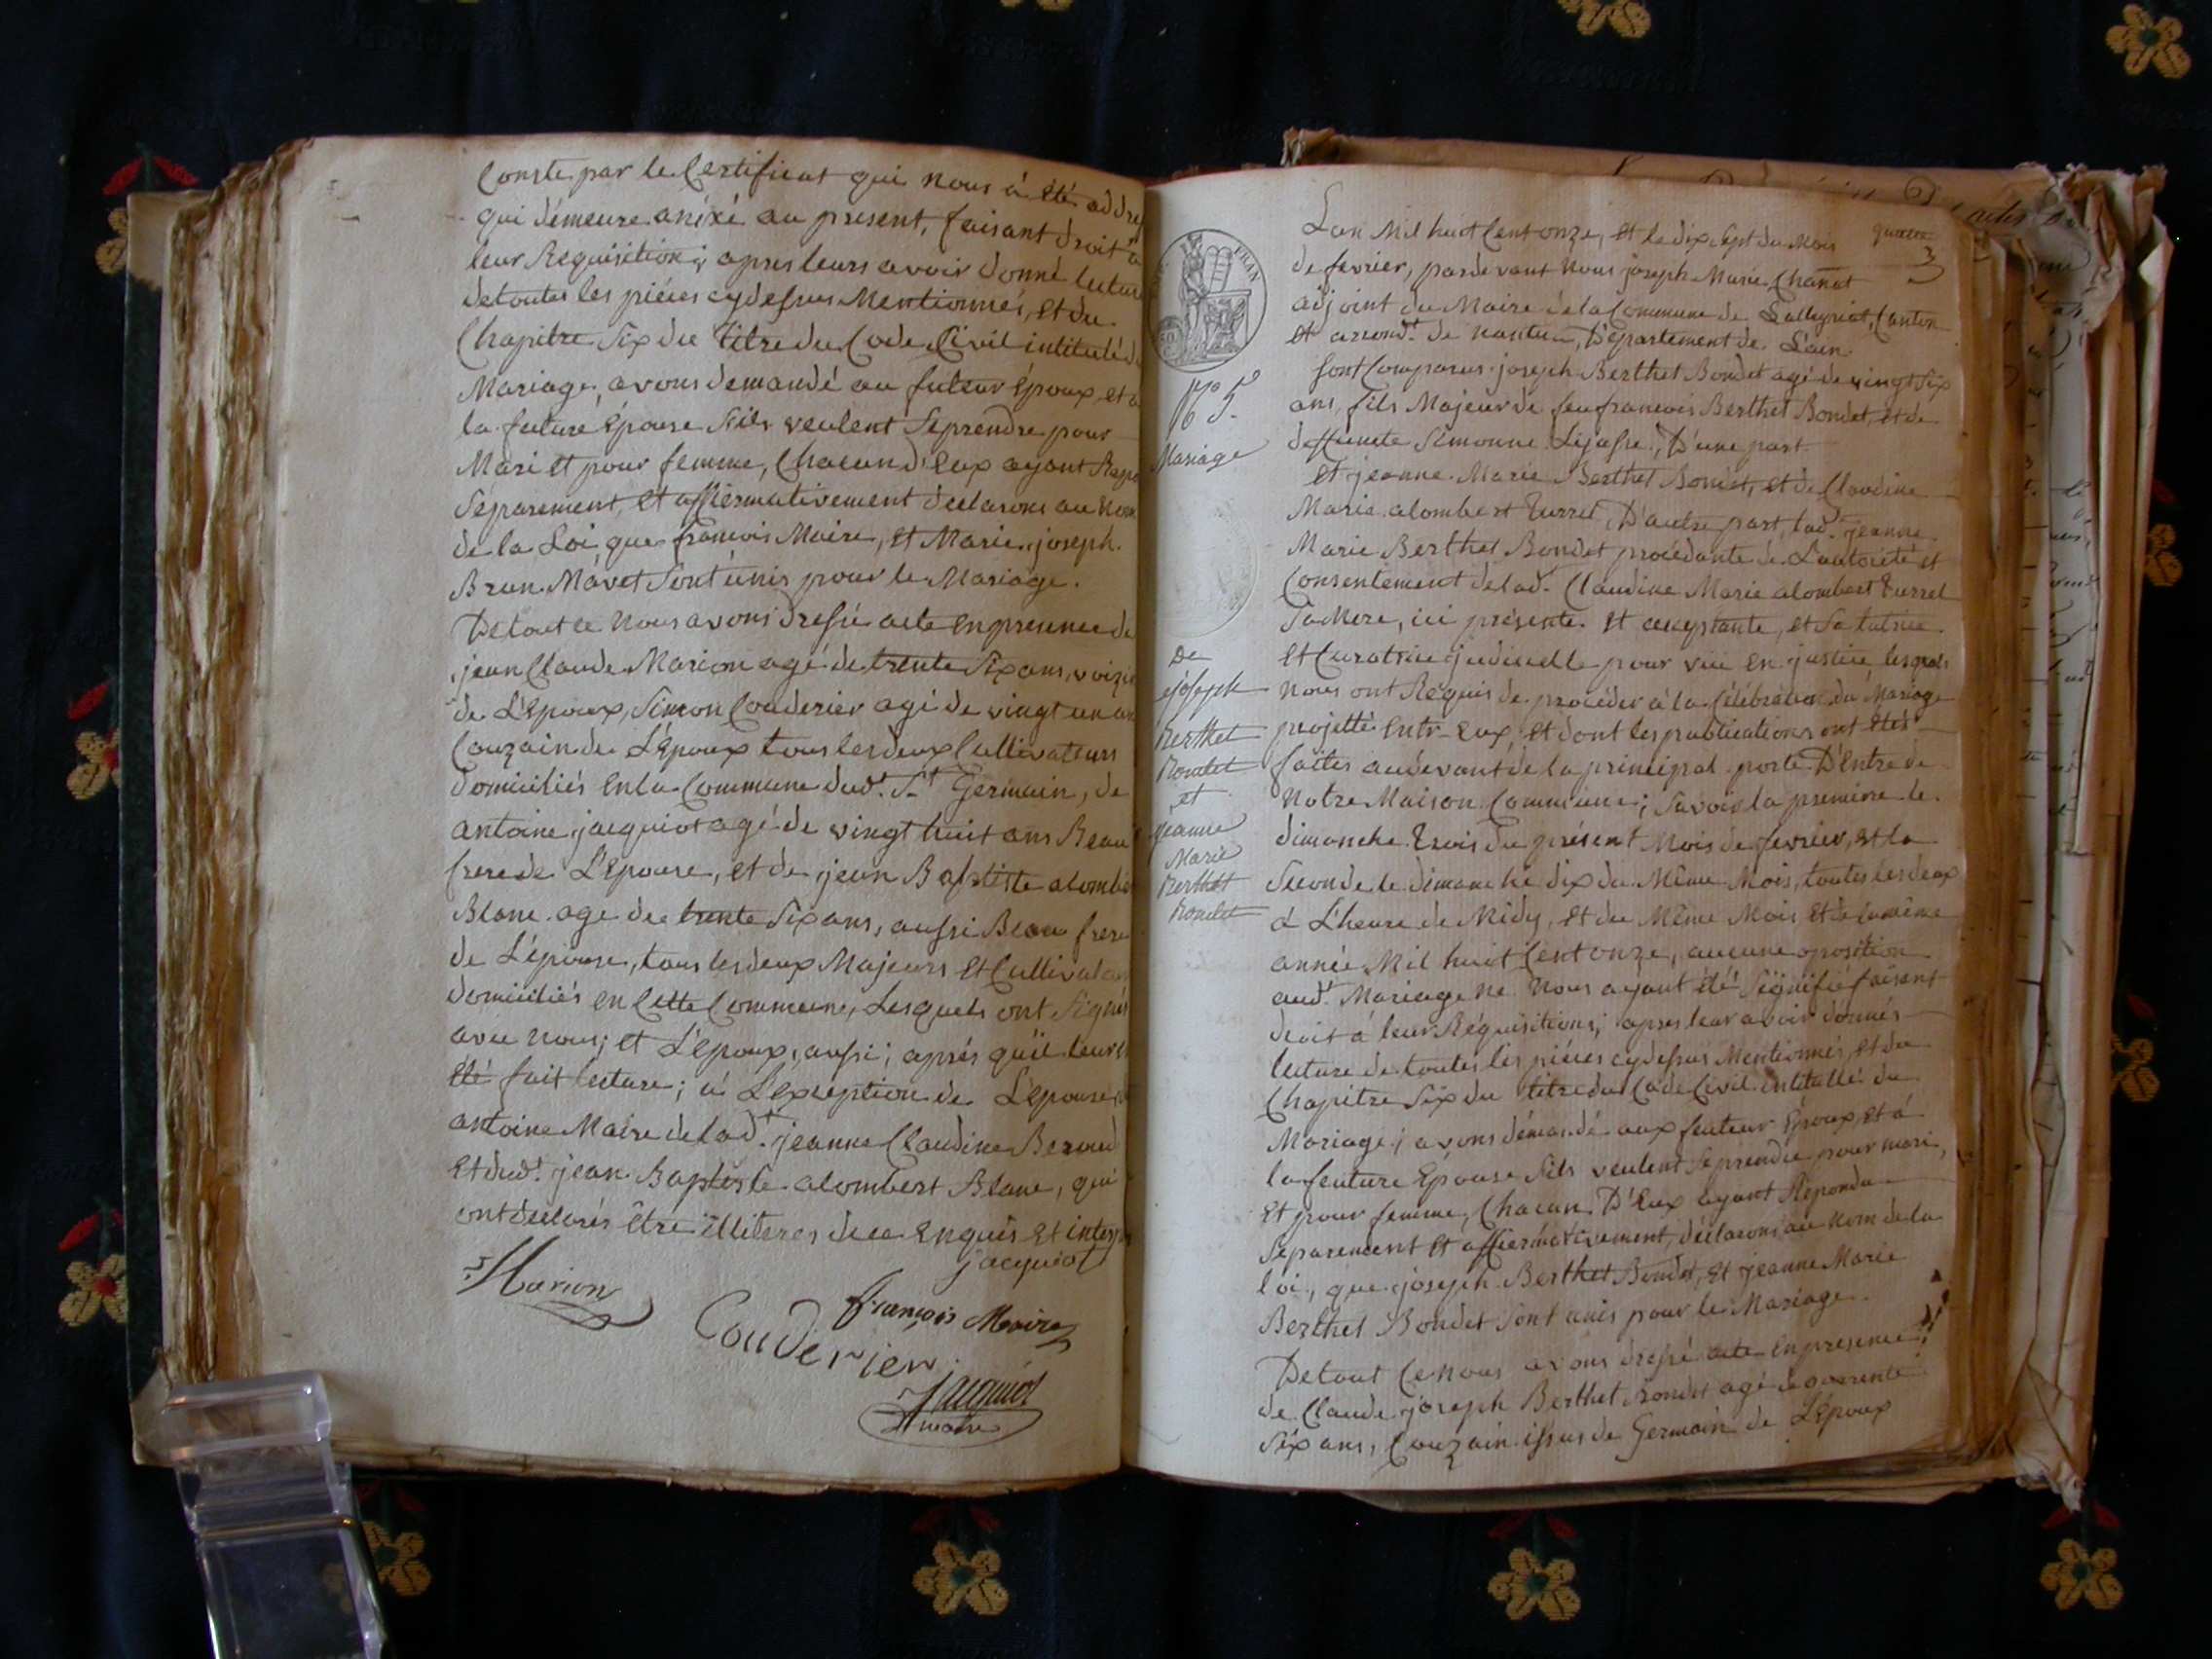 Conste par le Certificat qui nous à été addre
qui démeure anéxé au présent, faisant droit à
leur Requisition; apres leurs avoir donné lectur
de toutes les piéces cydessus Mentionnés, et du
Chapitre Six du titre du Code Civil intitulé d
Mariage, avons demandé au futeur Époux, et a
la future Épouse S'ils veulent Se prendre pour
Mari et pour femme, Chacun d'eux ayant Repo
Séparement, et affiermativement declarons au Nom
de la Loi que françois Maire, et Marie joseph
Brun Mavet Sont unis pour le Mariage.
De tout ce Nous avons dressé acte en presence de
jean Claude Marion agé de trente Six ans, voizin
de L'Epoux, Simeon Couderier agé de vingt un an
Couzain de L'Époux tous les deux Cultivateurs
domiciliés en la Commune dud.t S.t Germain, de
antoine jacquiot agé de vingt huit ans Beau
frere de L'Epouse, et de jean Baptiste alombe
Blanc age de trente Six ans, aussi Beau frere
de L'épouse, tous les deux Majeurs et Cultivateu
domiciliés en Cette Commune, Lesquels ont Signés
avec nous; et L'Epoux, aussi; aprés qu'il leur
été fait lecture; à L'exception de L'épouse,
antoine Maire de lad.t jeanne Claudine Beroud
et dud.t jean Baptiste alombert Blanc, qui
ont declarés être illiteres de ce enquis et interp
jacquiot
Marion
françois Maire
Couderier
Jacquiot
Maire
L'an Mil huit Cent onze, et le dix Sept du Mois
de fevrier, pardevant Nous joseph Marie Chanot
adjoint du Maire de la Commune de Lalleyriat, Canton
et arrond.t de nantua, Département de L'ain
Sont Comparus joseph Berthet Bondet agé de vingt Six
ans, fils Majeur de feu francois Berthet Bondet, et de
deffuncte Simonne Lejasse, D'une part
et jeanne Marie Berthet Bondet, et de Claudine
Marie alombert Turrel, D'autre part, lad.t jeanne
Marie Berthet Bondet procédante de L'autorité et
Consentement de lad.t Claudine Marie alombert Turrel
Sa Mere, ici présente et acceptante, et Sa tutrice
et Curatrice judicielle pour en justice, lesquels
Nous ont Réquis de procéder à la Célébration du Mariage
projetté entr-eux, et dont les publications ont étés
faites audevant de la principal porte D'Entre de
Notre Maison Commune; Savoir la premiere le
dimanche trois du présent Mois de fevrier, et la
Seconde le dimanche dix du Même Mois, toutes les deux
à L'heure de Midy, et du Même Mois et de la même
année Mil huit Cent onze, aucune oposition
aud.t Mariage ne Nous ayant été Signifié faisant
droit à leur Réquisitions; apres leur avoir donnés
lecture de toutes les piéces cydessus Mentionnés, et du
Chapitre Six du titre du Code Civil intitullé du
Mariage; avons démandé aux feuteur Époux, et á
la feuture Épouse S'ils veulent Se prendre pour mari,
et pour femme, Chacun D'Eux ayant Répondu
Séparement et affiermativement, déclarons au nom de la
loi, que joseph Berthet Bondet, et jeanne Marie
Berthet Bondet Sont unis pour le Mariage.
De tout Ce nous avons dressé acte en presence
de Claude joseph Berthet Bondet agé de quarente
Six ans, Couzain issus de Germain de L'Époux
3
FRAN
N.o 5.
Mariage
De
joseph
Berthet
Bondet
et
jeanne
Marie
Berthet
Bondet